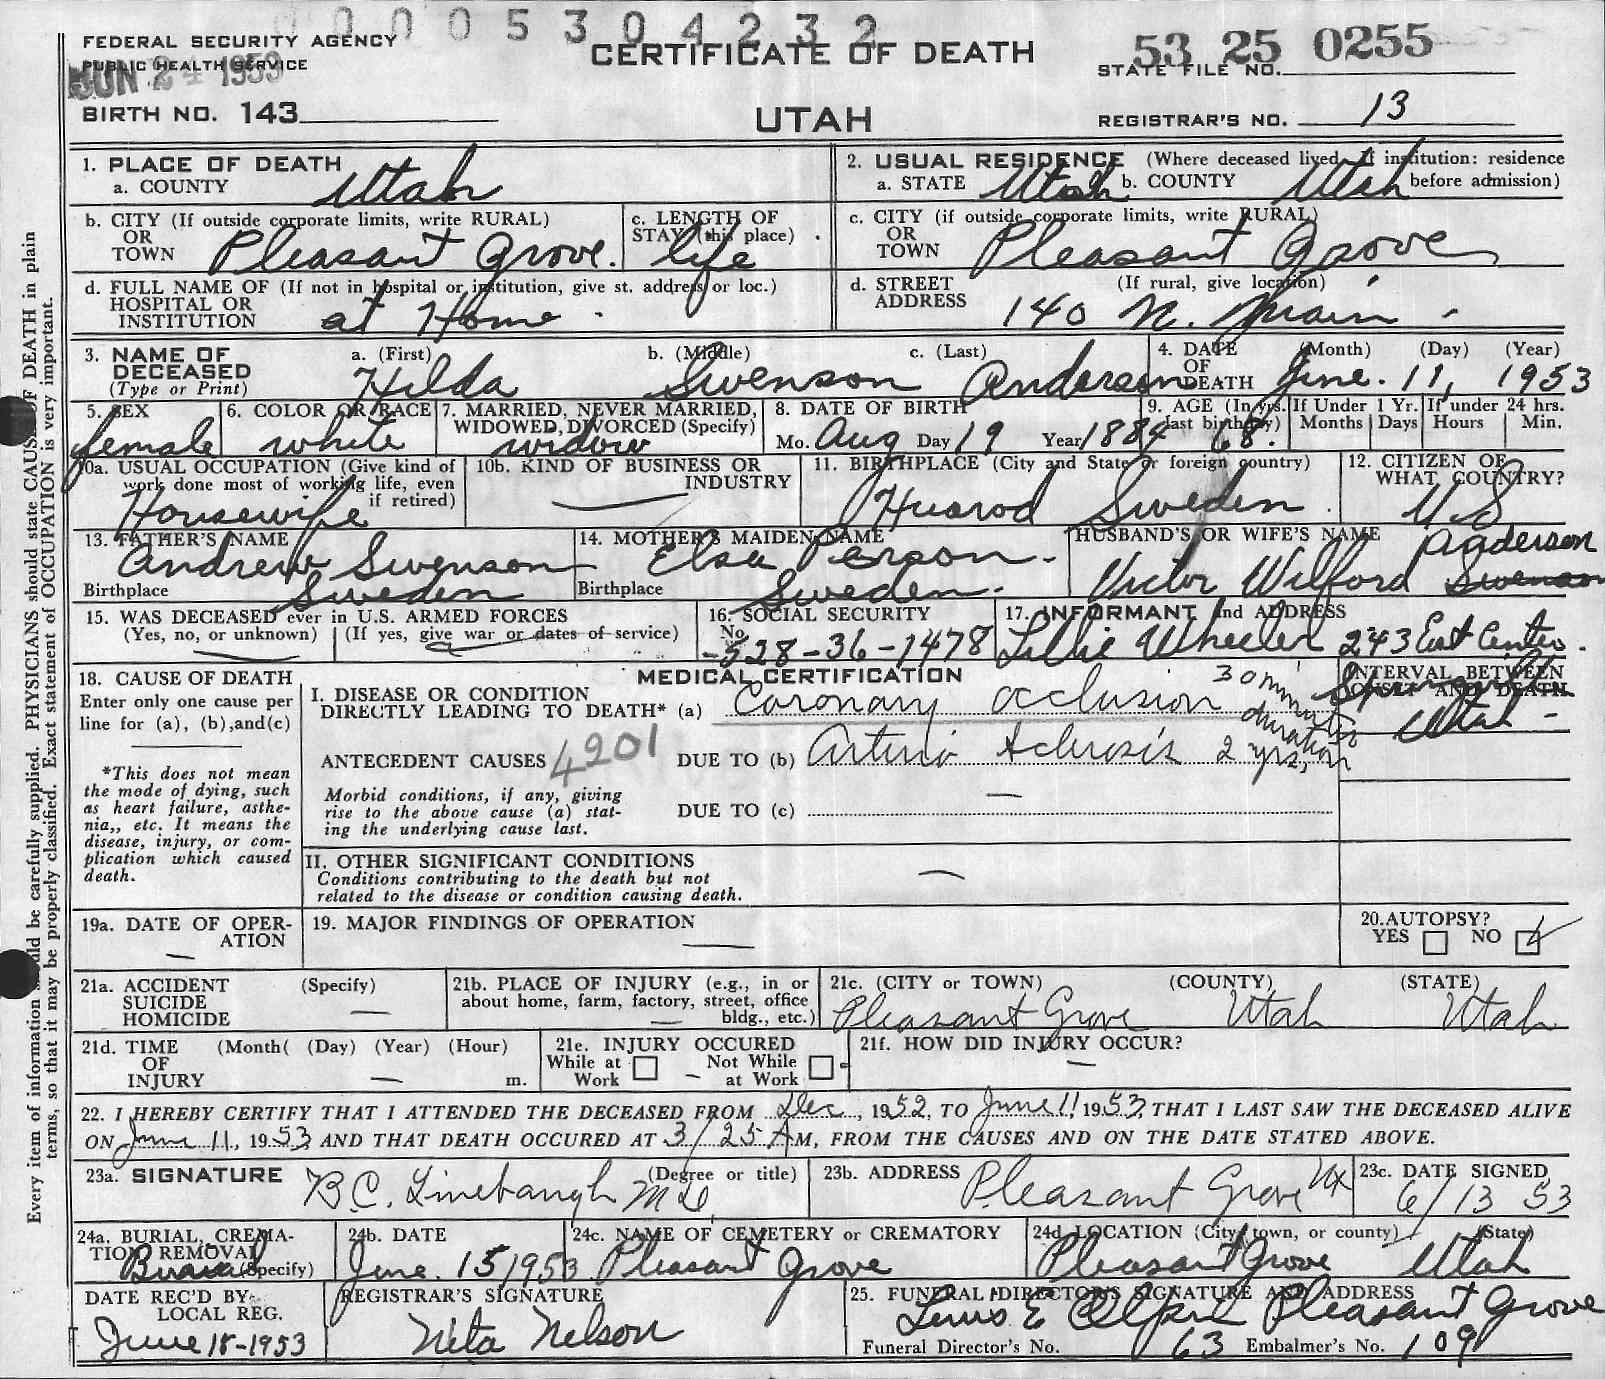 0005304232
FEDERAL SECURITY AGENCY
PUBLIC HEALTH SERVICE
JUN 24 1953
CERTIFICATE OF DEATH
53 25 0255
STATE FILE NO.
BIRTH NO. 143
UTAH
REGISTRAR'S NO. 13
1. PLACE OF DEATH
a. COUNTY Utah
2. USUAL RESIDENCE (Where deceased lived. If institution: residence before admission)
a. STATE Utah b. COUNTY Utah
b. CITY (If outside corporate limits, write RURAL)
OR
TOWN Pleasant Grove.
c. LENGTH OF
STAY (this place) life
c. CITY (if outside corporate limits, write RURAL)
OR
TOWN Pleasant Grove
d. FULL NAME OF (If not in hospital or institution, give st. address or loc.)
HOSPITAL OR
INSTITUTION at Home
d. STREET (If rural, give location)
ADDRESS 140 N. Main
3. NAME OF
DECEASED
(Type or Print)
a. (First) b. (Middle) c. (Last)
Hilda Swenson Anderson
4. DATE
OF
DEATH
(Month) (Day) (Year)
June. 11, 1953
5. SEX
female
6. COLOR OR RACE
white
7. MARRIED, NEVER MARRIED,
WIDOWED, DIVORCED (Specify)
widow
8. DATE OF BIRTH
Mo. Aug Day 19 Year 1884
9. AGE (In yrs.
last birthday)
68.
If Under 1 Yr.
Months Days
If under 24 hrs.
Hours Min.
10a. USUAL OCCUPATION (Give kind of
work done most of working life, even
if retired)
Housewife
10b. KIND OF BUSINESS OR
INDUSTRY
11. BIRTHPLACE (City and State or foreign country)
Huarod Sweden
12. CITIZEN OF
WHAT COUNTRY?
U.S
13. FATHER'S NAME
Andrew Swenson
Birthplace Sweden
14. MOTHER'S MAIDEN NAME
Elsa Person
Birthplace Sweden.
HUSBAND'S OR WIFE'S NAME
Anderson
Victor Wilford Swenson
15. WAS DECEASED ever in U.S. ARMED FORCES
(Yes, no, or unknown) (If yes, give war or dates of service)
16. SOCIAL SECURITY
No.
528-36-1478
17. INFORMANT and ADDRESS
Lillie Wheeler 243 East Center.
Springville
Utah
18. CAUSE OF DEATH
Enter only one cause per
line for (a), (b),and(c)
*This does not mean
the mode of dying, such
as heart failure, asthe-
nia,, etc. It means the
disease, injury, or com-
plication which caused
death.
MEDICAL CERTIFICATION
INTERVAL BETWEEN
ONSET AND DEATH
I. DISEASE OR CONDITION
DIRECTLY LEADING TO DEATH* (a) Coronary occlusion 30 minutes duration
ANTECEDENT CAUSES 4201 DUE TO (b) Arterio Sclerosis 2 yrs,
Morbid conditions, if any, giving
rise to the above cause (a) stat-
ing the underlying cause last.
DUE TO (c)
II. OTHER SIGNIFICANT CONDITIONS
Conditions contributing to the death but not
related to the disease or condition causing death.
19a. DATE OF OPER-
ATION
19. MAJOR FINDINGS OF OPERATION
20.AUTOPSY?
YES NO
21a. ACCIDENT (Specify)
SUICIDE
HOMICIDE
21b. PLACE OF INJURY (e.g., in or
about home, farm, factory, street, office
bldg., etc.)
21c. (CITY or TOWN) (COUNTY) (STATE)
Pleasant Grove Utah Utah
21d. TIME (Month( (Day) (Year) (Hour)
OF
INJURY m.
21e. INJURY OCCURED
While at Work Not While at Work
21f. HOW DID INJURY OCCUR?
22. I HEREBY CERTIFY THAT I ATTENDED THE DECEASED FROM Dec, 1952, TO June 11, 1953, THAT I LAST SAW THE DECEASED ALIVE
ON June 11, 1953 AND THAT DEATH OCCURED AT 3/25 AM, FROM THE CAUSES AND ON THE DATE STATED ABOVE.
23a. SIGNATURE (Degree or title)
B C. Linebaugh M D.
23b. ADDRESS
Pleasant Grove Ut
23c. DATE SIGNED
6/13 53
24a. BURIAL, CREMA-
TION REMOVAL
(Specify)
Burial
24b. DATE
June. 15, 1953
24c. NAME OF CEMETERY or CREMATORY
Pleasant Grove
24d. LOCATION (City, town, or county) (State)
Pleasant Grove Utah
DATE REC'D BY
LOCAL REG.
June 18-1953
REGISTRAR'S SIGNATURE
Neta Nelson
25. FUNERAL DIRECTOR'S SIGNATURE AND ADDRESS
E Pleasant Grove
Funeral Director's No. 63 Embalmer's No. 109
Every item of information should be carefully supplied. PHYSICIANS should state CAUSE OF DEATH in plain
terms, so that it may be properly classified. Exact statement of OCCUPATION is very important.